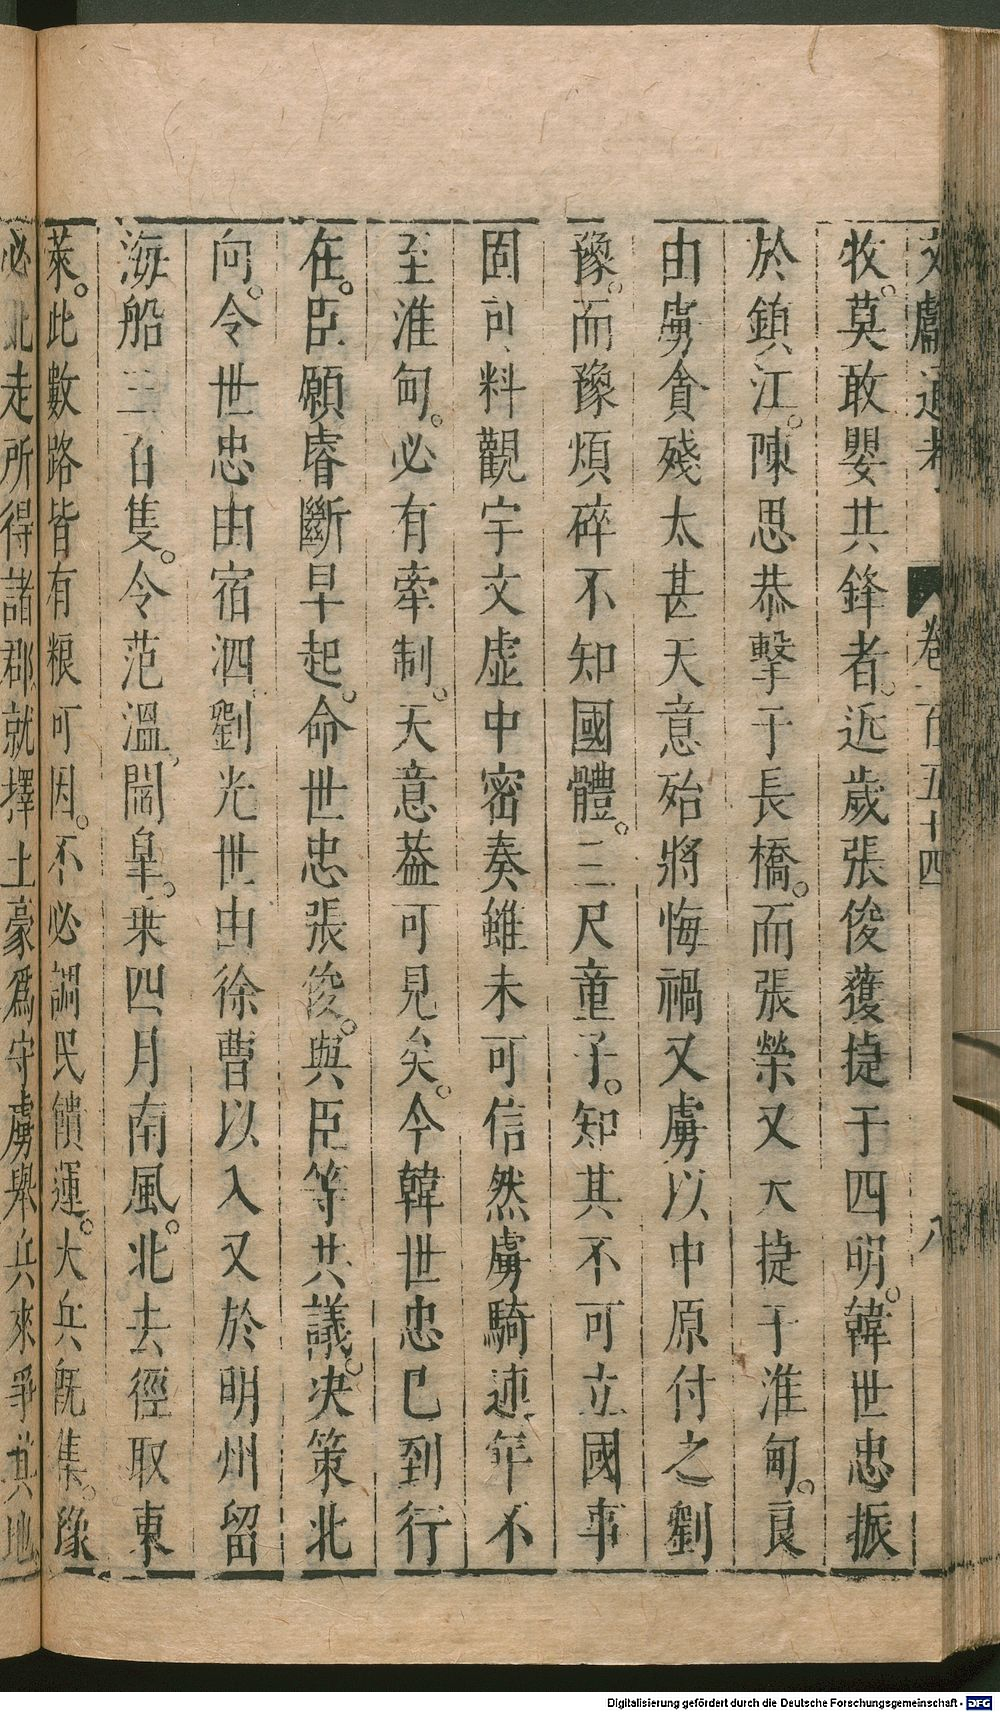 文獻通考 卷一百五十四 八
牧。莫敢嬰其鋒者。近歲張俊獲捷于四明。韓世忠振
於鎮江。陳思恭擊于長橋。而張榮又大捷于淮甸。良
由虜貪殘太甚天意殆將悔禍又虜以中原付之劉
豫。而豫煩碎不知國體。三尺童子。知其不可立國事
固可料觀宇文虛中密奏雖未可信然虜騎連年不
至淮甸。必有牽制。天意葢可見矣。今韓世忠已到行
在。臣願睿斷早起。命世忠張俊。與臣等共議。决策北
向。令世忠由宿泗劉光世由徐曹以入又於明州留
海船三百隻。令范溫、閻臯。乗四月南風。北去徑取東
萊。此數路皆有粮可因。不必調民饋運。大兵既集。豫
必北走所得諸郡就擇土豪爲守虜舉兵來爭其地
Digitalisierung gefördert durch die Deutsche Forschungsgemeinschaft - DFG